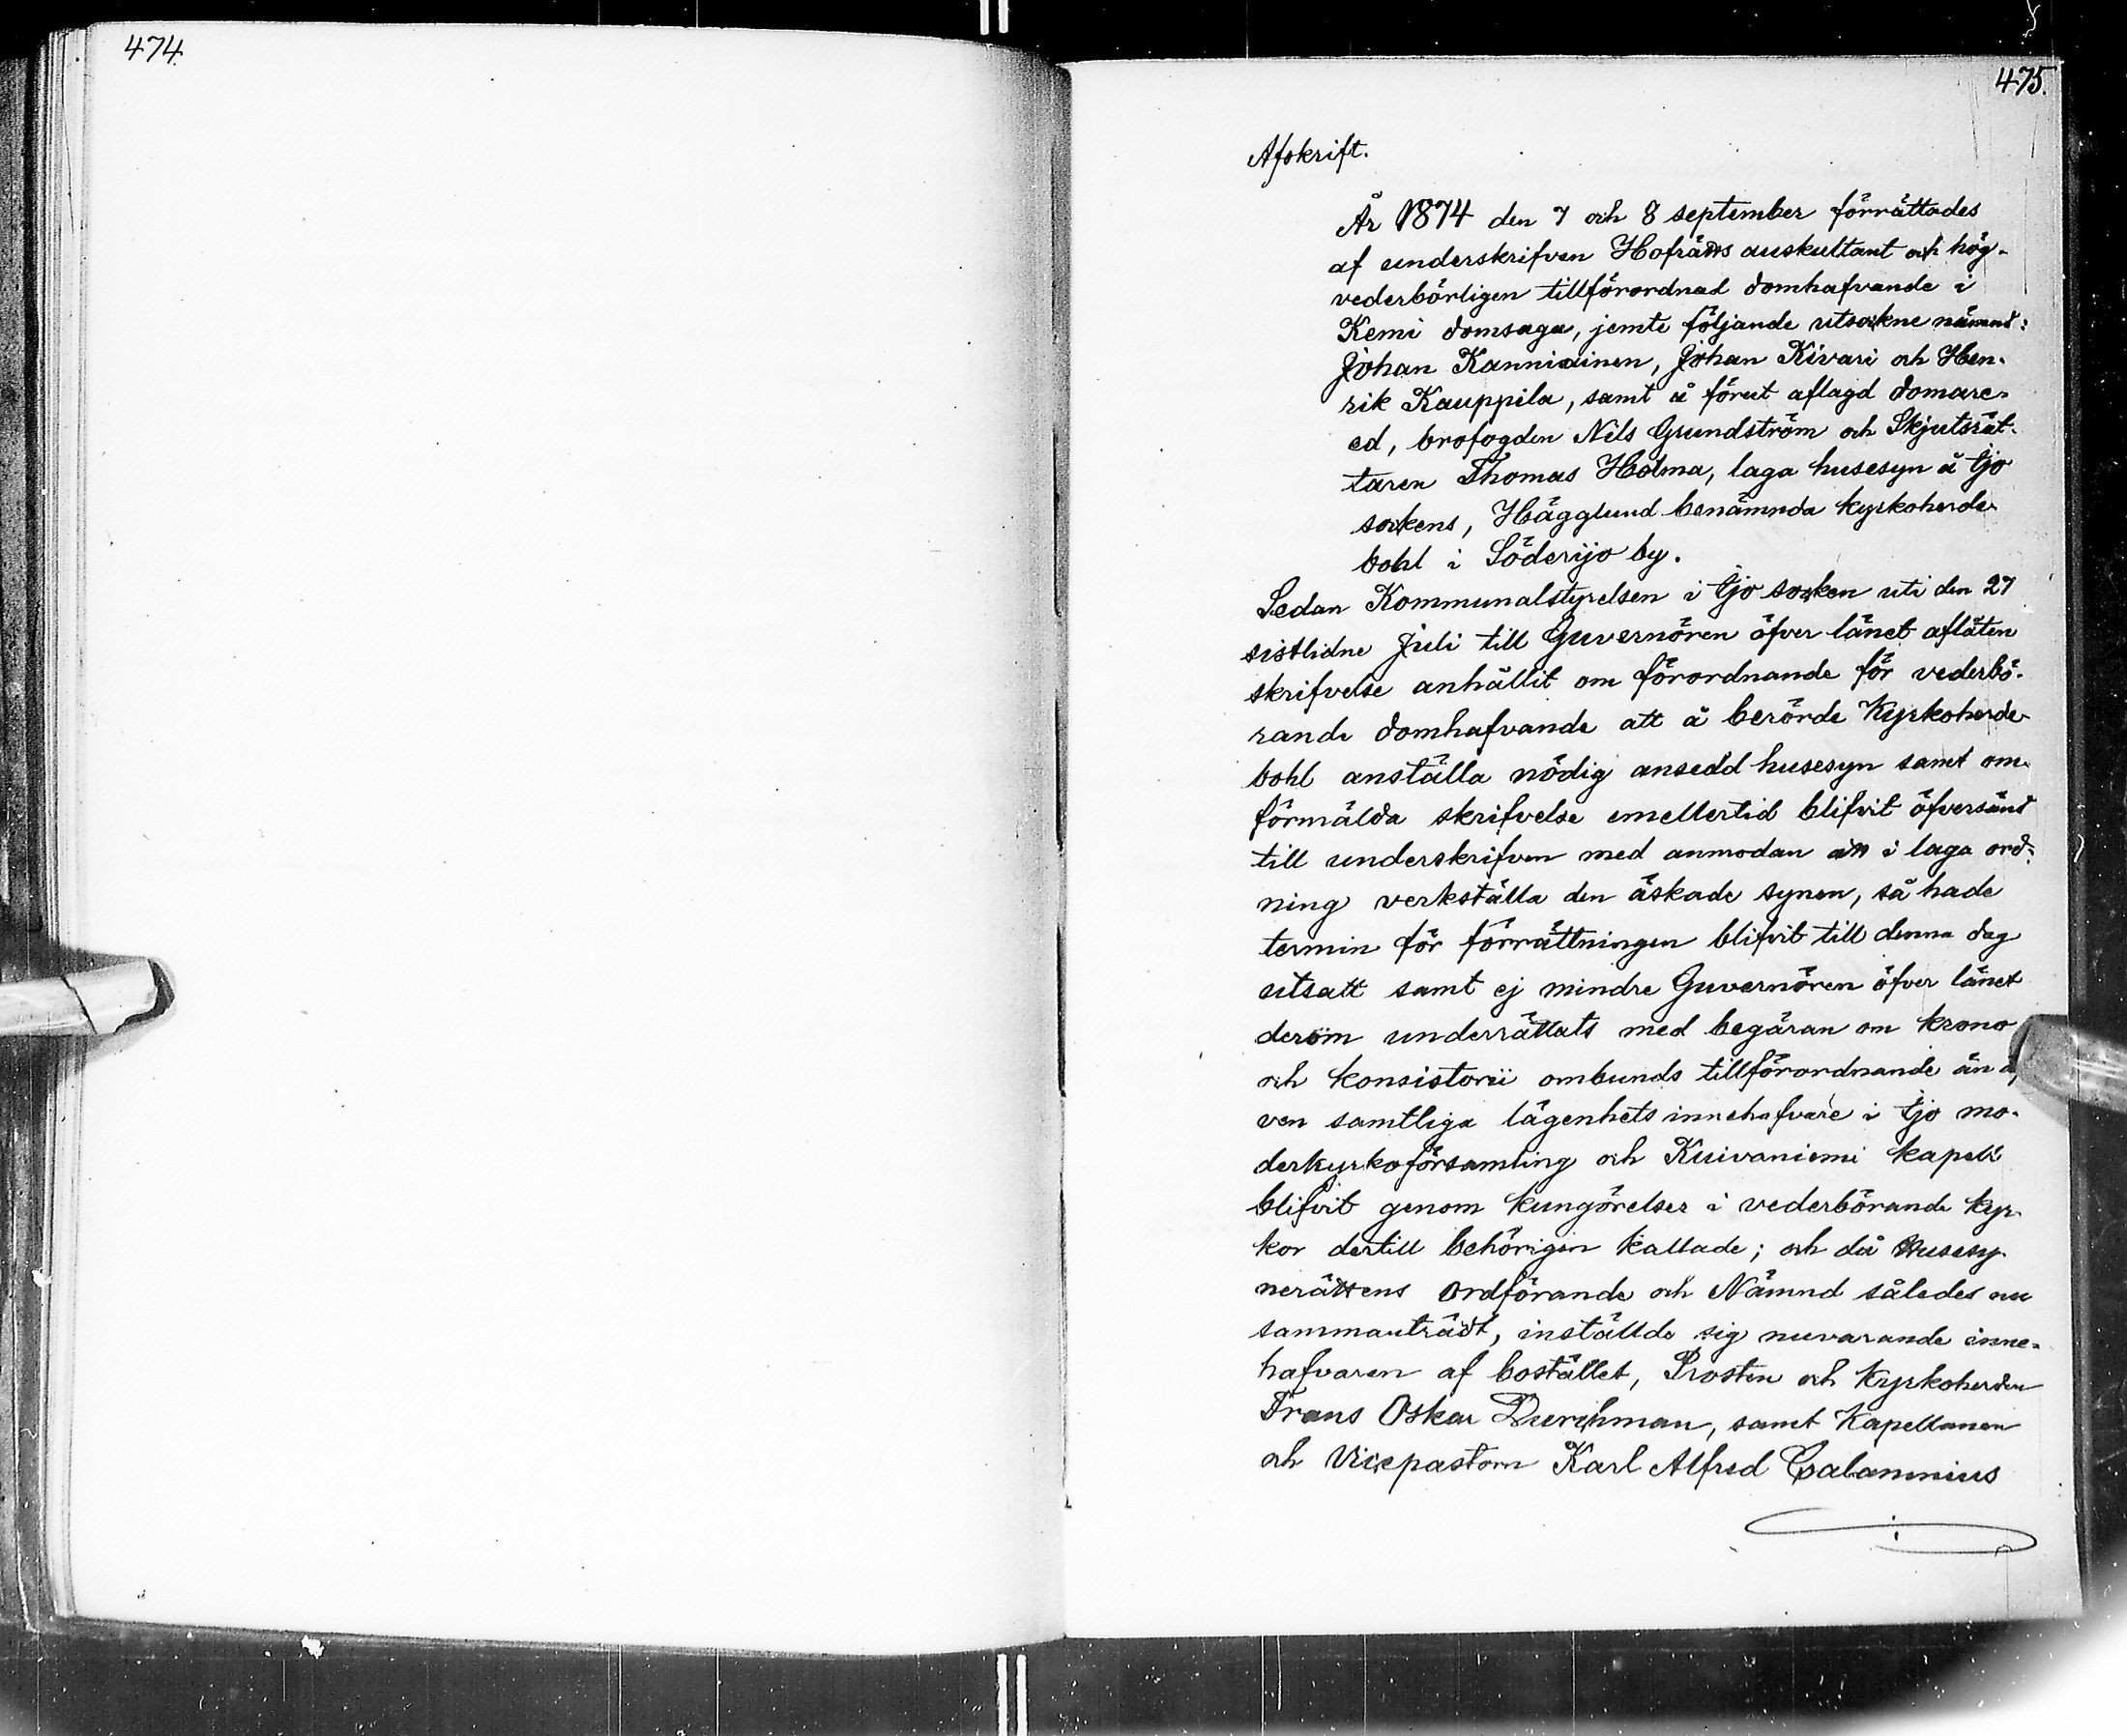 474.
475.
Afskrift.
År 1874 den 7 och 8 september förrättades
af underskrifven Hofrätts auskultant och hög-
vederbörligen tillförordnad domhafvande i
Kemi domsaga, jemte följande utsockne nämnd:
Johan Kanniainen, Johan Kivari och Hen-
rik Kauppila, samt å förut aflagd domare-
ed, brofogden Nils Grundström och Skjutsrät-
taren Thomas Holma, laga husesyn å Ijo
sockens, Hägglund benämnda kyrkoherde-
bohl i Söderijo by.
Sedan Kommunalstyrelsen i Ijo socken uti den 27
sistlidne Juli till Guvernören öfver länet aflåten
skrifvelse anhållit om förordnande för vederbö-
rande domhafvande att å berörde Kyrkoherde-
bohl anställa nödig ansedd husesyn samt om-
förmälda skrifvelse emellertid blifvit öfversänd
till underskrifven med anmodan att i laga ord-
ning verkställa den äskade synen, så hade
termin för förrättningen blifvit till denna dag
utsatt samt ej mindre Guvernören öfver länet
derom underrättats med begäran om krono
och konsistorii ombuds tillförordnande än ä
ven samtliga lägenhets innehafvare i Ijo mo-
derkyrkoförsamling och Kuivaniemi kapell
blifvit genom kungörelser i vederbörande kyr-
kor dertill behörigen kallade; och då Husesy-
nerättens Ordförande och Nämnd således nu
sammanträdt, inställde sig nuvarande inne-
hafvaren af bostället, Prosten och Kyrkoherden
Frans Oskar Durchman, samt Kapellanen
och Vicepastorn Karl Alfred Calamnius